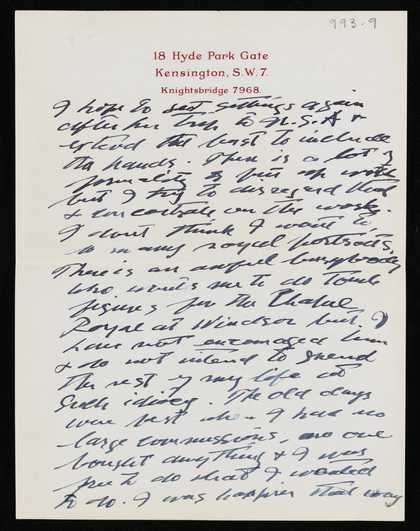 993-9
18 Hyde Park Gate
Kensington, S.W.7.
Knightsbridge 7968.
I hope to start sittings again
after her trip to U.S.A &
extend the bust to include
the hands. There is a lot of
formality to put up with
but I try to disregard that
& concentrate on the work.
I don't think I want to do
so many royal portraits,
There is an awful busybody
who wants me to do tomb
figures for the Chapel
Royal at Windsor but I
have not encouraged him
& do not intend to spend
the rest of my life at
such idiocy. The old days
were best when I had no
large commissions, no one
bought anything & I was
free to do what I wanted
to do. I was happier that way